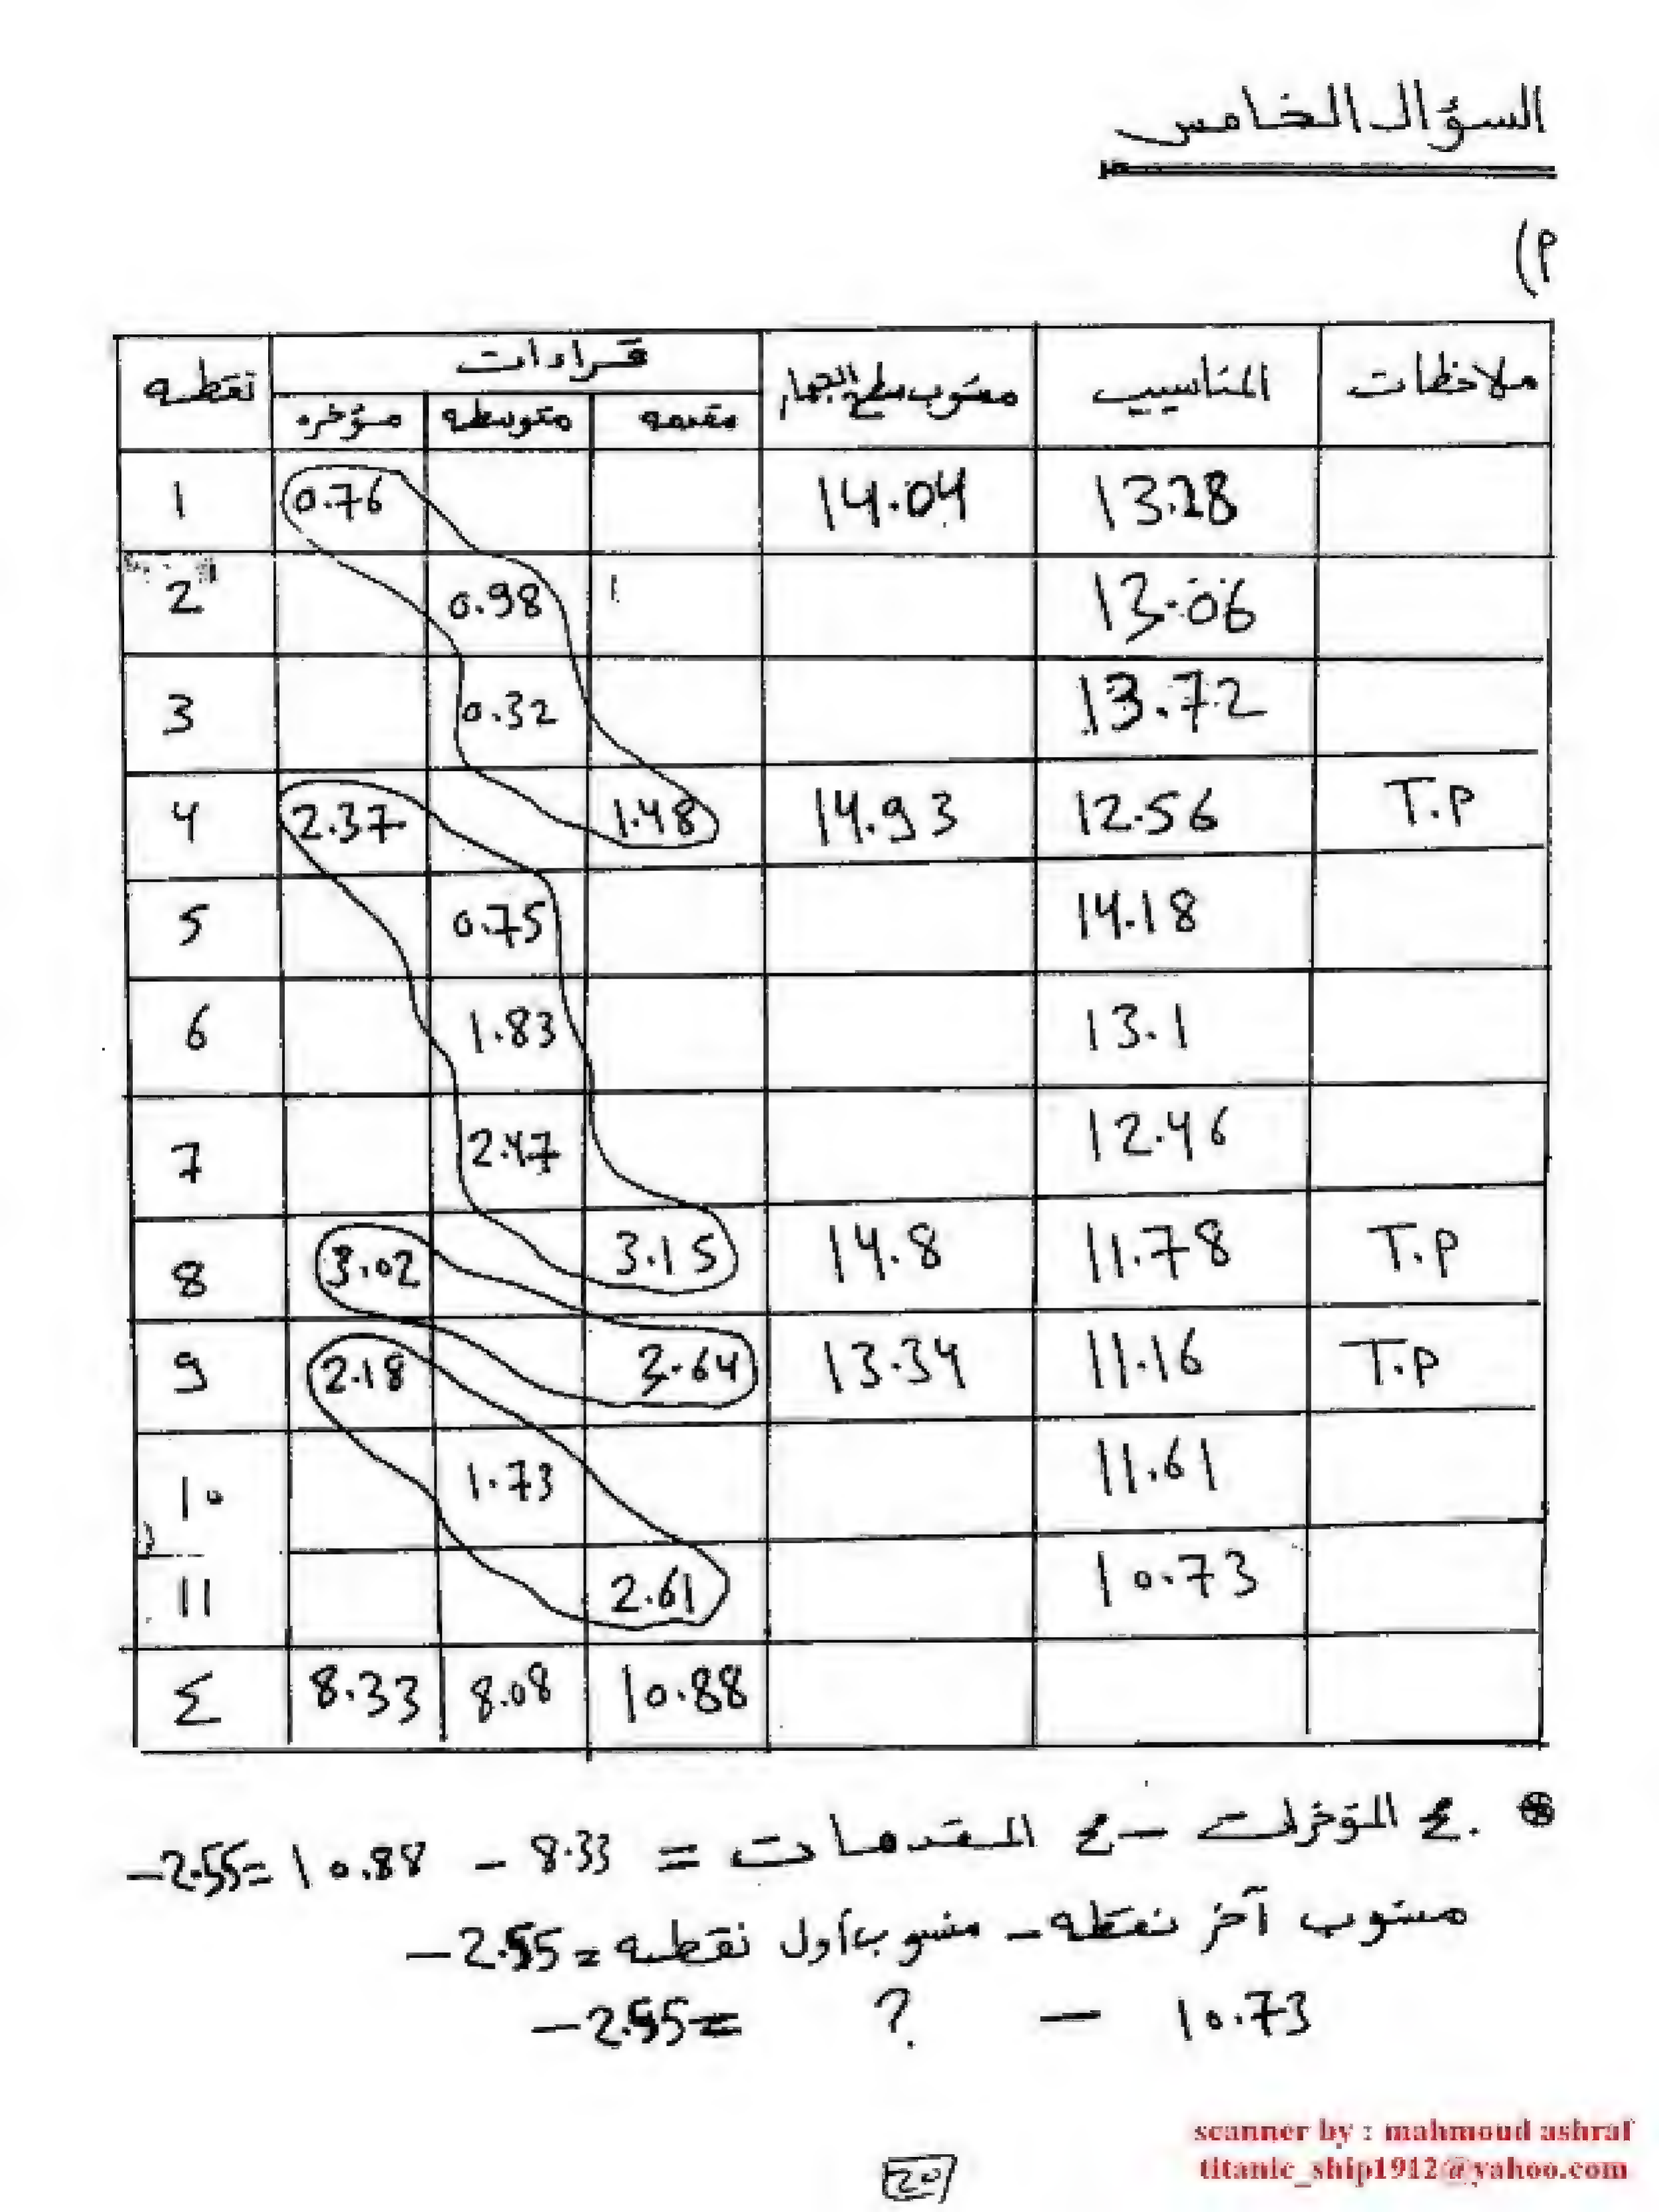 السؤال الخامس
(م
نقطه قراءات منسوب سطح الجهاز المناسيب ملاحظات
مؤخره متوسطه مقدمه
1 0.76 14.04 13.28
2 0.98 13.06
3 0.32 13.72
4 2.37 1.48 14.93 12.56 T.P
5 0.75 14.18
6 1.83 13.1
7 2.47 12.46
8 3.02 3.15 14.8 11.78 T.P
9 2.18 3.64 13.34 11.16 T.P
10 1.73 11.61
11 2.61 10.73
Σ 8.33 8.08 10.88
⊛ .ع المؤخرات – ع المقدمات = 8.33 – 10.88 = -2.55
منسوب آخر نقطه – منسوب أول نقطه = -2.55
10.73 – ? = -2.55
20
scanner by : mahmoud ashraf
titanic_ship1912@yahoo.com